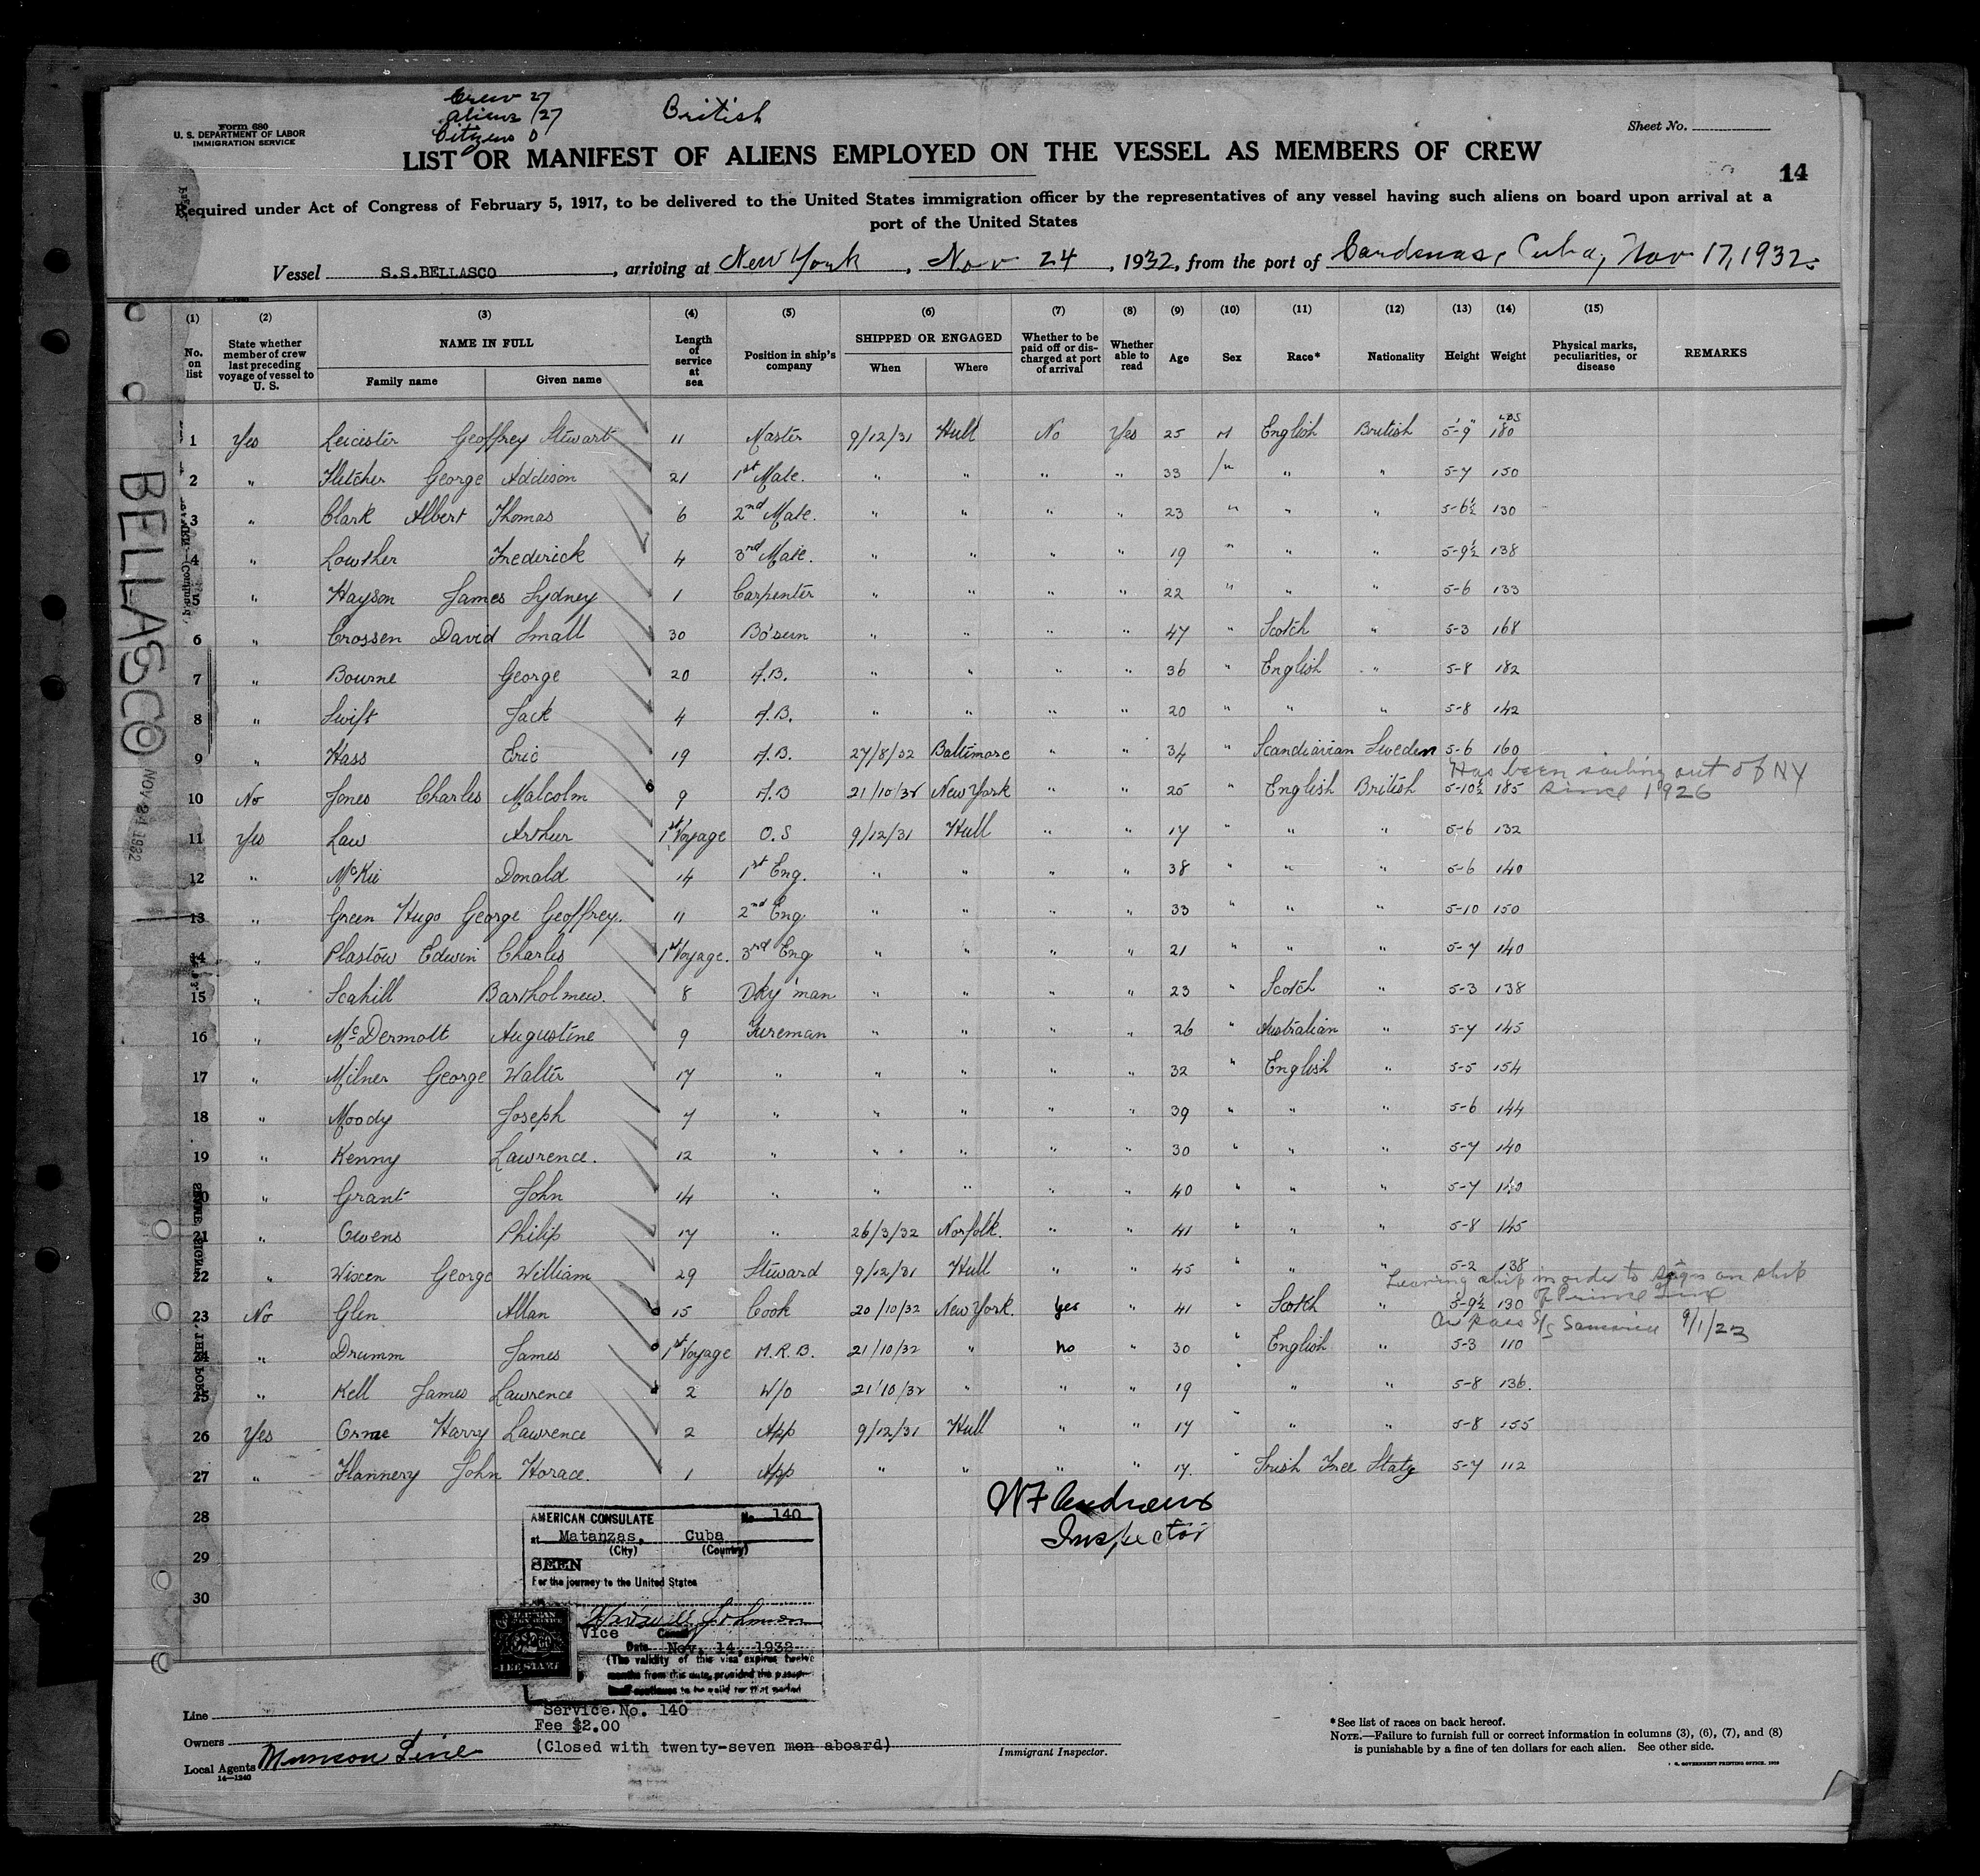 Crew 27
Aliens 27
Citizens 0
British
Form 680
U. S. DEPARTMENT OF LABOR
IMMIGRATION SERVICE
Sheet No.
LIST OR MANIFEST OF ALIENS EMPLOYED ON THE VESSEL AS MEMBERS OF CREW
14
Required under Act of Congress of February 5, 1917, to be delivered to the United States immigration officer by the representatives of any vessel having such aliens on board upon arrival at a
port of the United States
Vessel S.S.BELLASCO, arriving at New York, Nov 24, 1932, from the port of Cardenas, Cuba, Nov 17, 1932.
(1) (2) (3) (4) (5) (6) (7) (8) (9) (10) (11) (12) (13) (14) (15)
No. on list State whether member of crew last preceding voyage of vessel to U. S. NAME IN FULL Family name Given name Length of service at sea Position in ship's company SHIPPED OR ENGAGED When Where Whether to be paid off or discharged at port of arrival Whether able to read Age Sex Race* Nationality Height Weight Physical marks, peculiarities, or disease REMARKS
1 Yes Leicester Geoffrey Stewart 11 Master 9/12/31 Hull No Yes 25 M English British 5-9" 180 LBS
2 " Fletcher George Addison 21 1st Mate. " " " " 33 " " " 5-7 150
3 " Clark Albert Thomas 6 2nd Mate. " " " " 23 " " " 5-6½ 130
4 " Lowther Frederick 4 3rd Mate. " " " " 19 " " " 5-9½ 138
5 " Hayson James Sydney 1 Carpenter " " " " 22 " " " 5-6 133
6 " Crossen David Small 30 Bo'sun " " " " 47 " Scotch " 5-3 168
7 " Bourne George 20 A.B. " " " " 36 " English " 5-8 182
8 " Swift Jack 4 A.B. " " " " 20 " " " 5-8 142
9 " Hass Eric 19 A.B. 27/8/32 Baltimore " " 34 " Scandiavian Sweden 5-6 160
Has been sailing out of NY
since 1926
10 No Jones Charles Malcolm 9 A.B 21/10/32 New York " " 25 " English British 5-10½ 185
11 Yes Law Arthur 1st Voyage O.S 9/12/31 Hull " " 17 " " " 5-6 132
12 " McKie Donald 14 1st Eng. " " " " 38 " " " 5-6 140
13 " Green Hugo George Geoffrey. 11 2nd Eng " " " " 33 " " " 5-10 150
14 " Plastow Edwin Charles 1st Voyage. 3rd Eng " " " " 21 " " " 5-7 140
15 " Scahill Bartholmew. 8 Dky'man " " " " 23 " Scotch " 5-3 138
16 " McDermott Augustine 9 Fireman " " " " 26 " Australian " 5-7 145
17 " Milner George Walter 17 " " " " " 32 " English " 5-5 154
18 " Moody Joseph 7 " " " " " 39 " " " 5-6 144
19 " Kenny Lawrence. 12 " " " " " 30 " " " 5-7 140
20 " Grant John 14 " " " " " 40 " " " 5-7 140
21 " Owens Philip 17 " 26/3/32 Norfolk. " " 41 " " " 5-8 145
22 " George William 29 Steward 9/12/31 Hull " " 45 " " " 5-2 138
Leaving ship in order to sign on ship
of Prince Line
23 No Glen Allan 15 Cook 20/10/32 New York. Yes " 41 " Scotch " 5-9½ 130
24 " Drumm James 1st Voyage M.R.B. 21/10/32 " no " 30 " English " 5-3 110
25 " Kell James Lawrence 2 W/O 21/10/32 " " " 19 " " " 5-8 136.
26 Yes Orme Harry Lawrence 2 App 9/12/31 Hull " " 17 " " " 5-8 155
27 " Flannery John Horace. 1 App " " " " 17. " Irish Free State 5-7 112
28
29
30
W F Andrews
Inspector
AMERICAN CONSULATE No 140
at Matanzas, Cuba
(City) (Country)
SEEN
For the journey to the United States
Vice Consul
Date Nov. 14, 1932
(The validity of this visa expires twelve
months from this date, provided the passport
itself continues to be valid for that period
Service No. 140
Fee $2.00
(Closed with twenty-seven men aboard)
Line
Owners
Local Agents Munson Line
14—1240
Immigrant Inspector.
*See list of races on back hereof.
NOTE.—Failure to furnish full or correct information in columns (3), (6), (7), and (8)
is punishable by a fine of ten dollars for each alien. See other side.
BELLASCO
NOV 24 1932